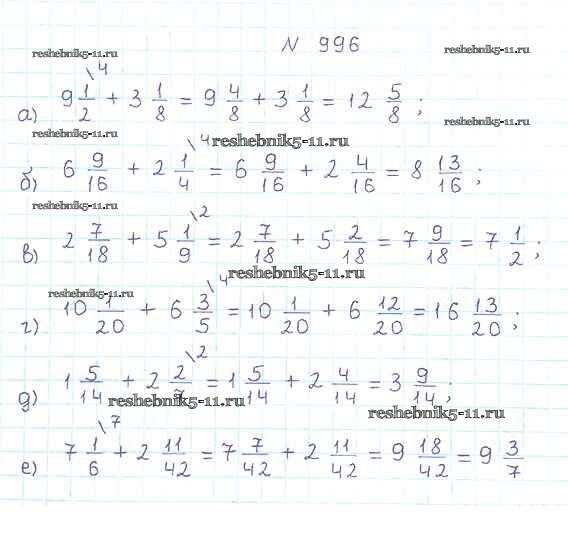 N 996
reshebnik5-11.ru reshebnik5-11.ru
а) 9 1/2 \4 + 3 1/8 = 9 4/8 + 3 1/8 = 12 5/8 ;
reshebnik5-11.ru reshebnik5-11.ru
reshebnik5-11.ru
б) 6 9/16 + 2 1/4 \4 = 6 9/16 + 2 4/16 = 8 13/16 ;
reshebnik5-11.ru
в) 2 7/18 + 5 1/9 \2 = 2 7/18 + 5 2/18 = 7 9/18 = 7 1/2 ;
reshebnik5-11.ru
reshebnik5-11.ru
г) 10 1/20 + 6 3/5 \4 = 10 1/20 + 6 12/20 = 16 13/20 ;
д) 1 5/14 + 2 2/7 \2 = 1 5/14 + 2 4/14 = 3 9/14 ;
reshebnik5-11.ru reshebnik5-11.ru
е) 7 1/6 \7 + 2 11/42 = 7 7/42 + 2 11/42 = 9 18/42 = 9 3/7